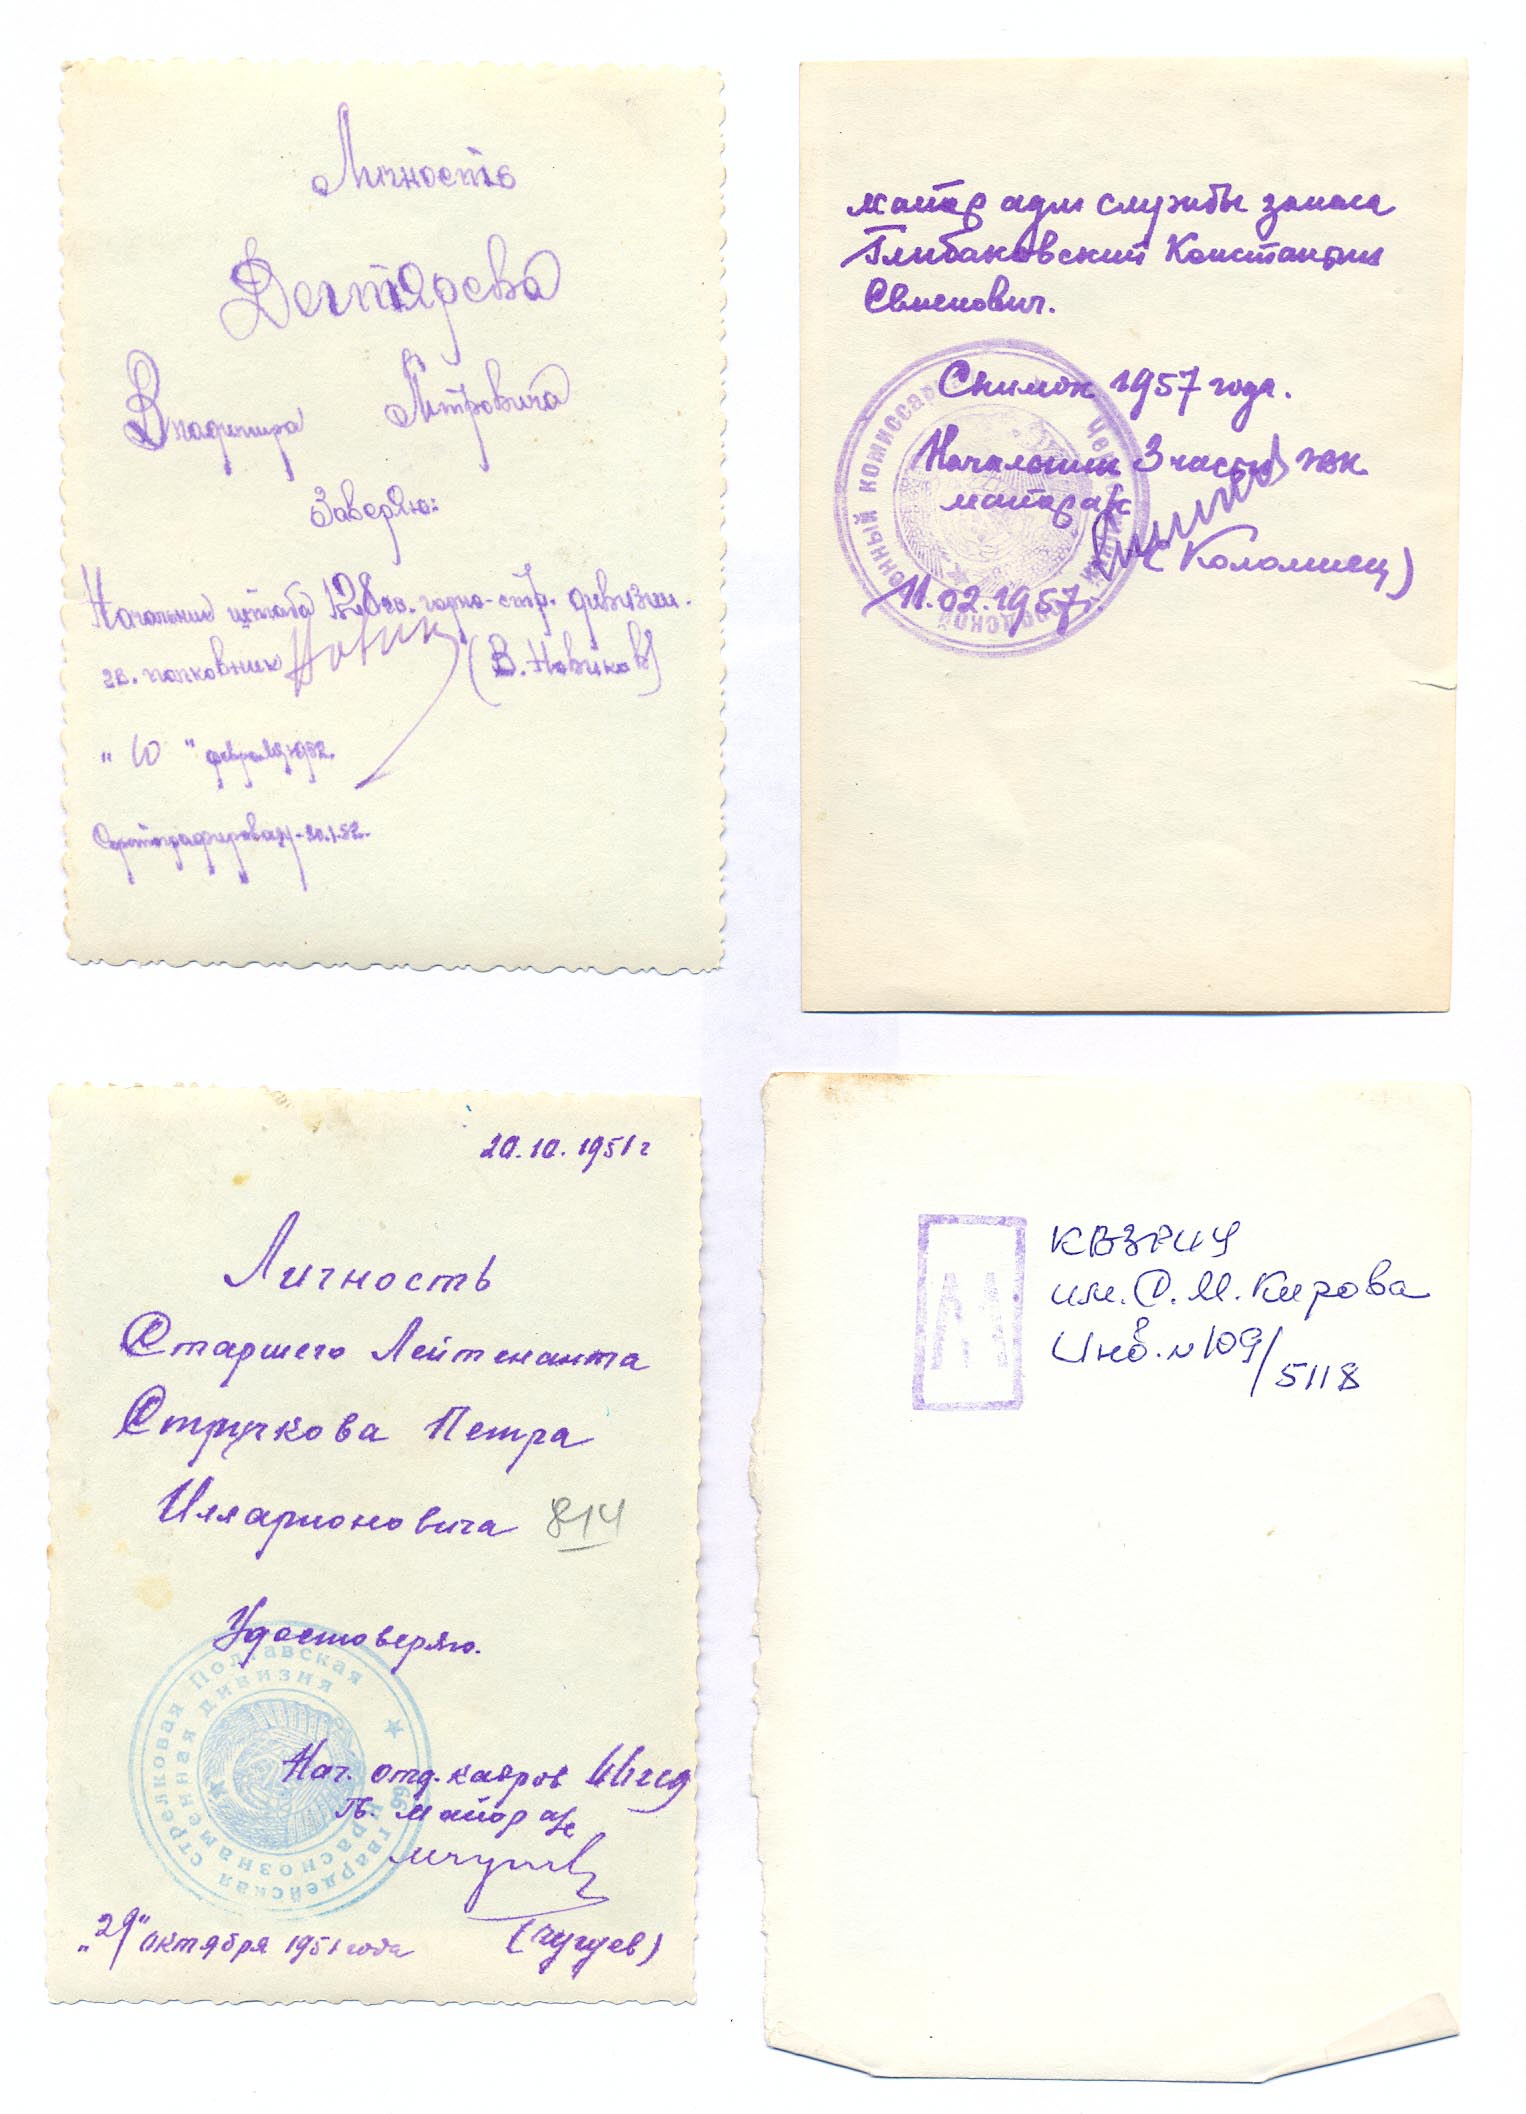 Личность
Дегтярева
Владимира Петровича
Заверяю:
Начальник штаба 128 гв. горно-стр. дивизии.
гв. полковник (В. Новиков)
"10" февраля 1952.
Сфотографирован - 20.1.52.
майор адм службы запаса
Глибаковский Константин
Семенович.
Снимок 1957 года.
Начальник 3 части ГВК
майор а/с
(Коломиец)
11.02.1957г.
20.10.1951 г
Личность
Старшего Лейтенанта
Стручкова Петра
Илларионовича 814
Удостоверяю.
66 гвардейская стрелковая Полтавская
Краснознаменная дивизия
Нач. отд. кадров 66 гсд
Гв. майор а/с
(Чугуев)
"29" октября 1951 года
КВЗРИУ
им. С. М. Кирова
Инв. № 109/5118